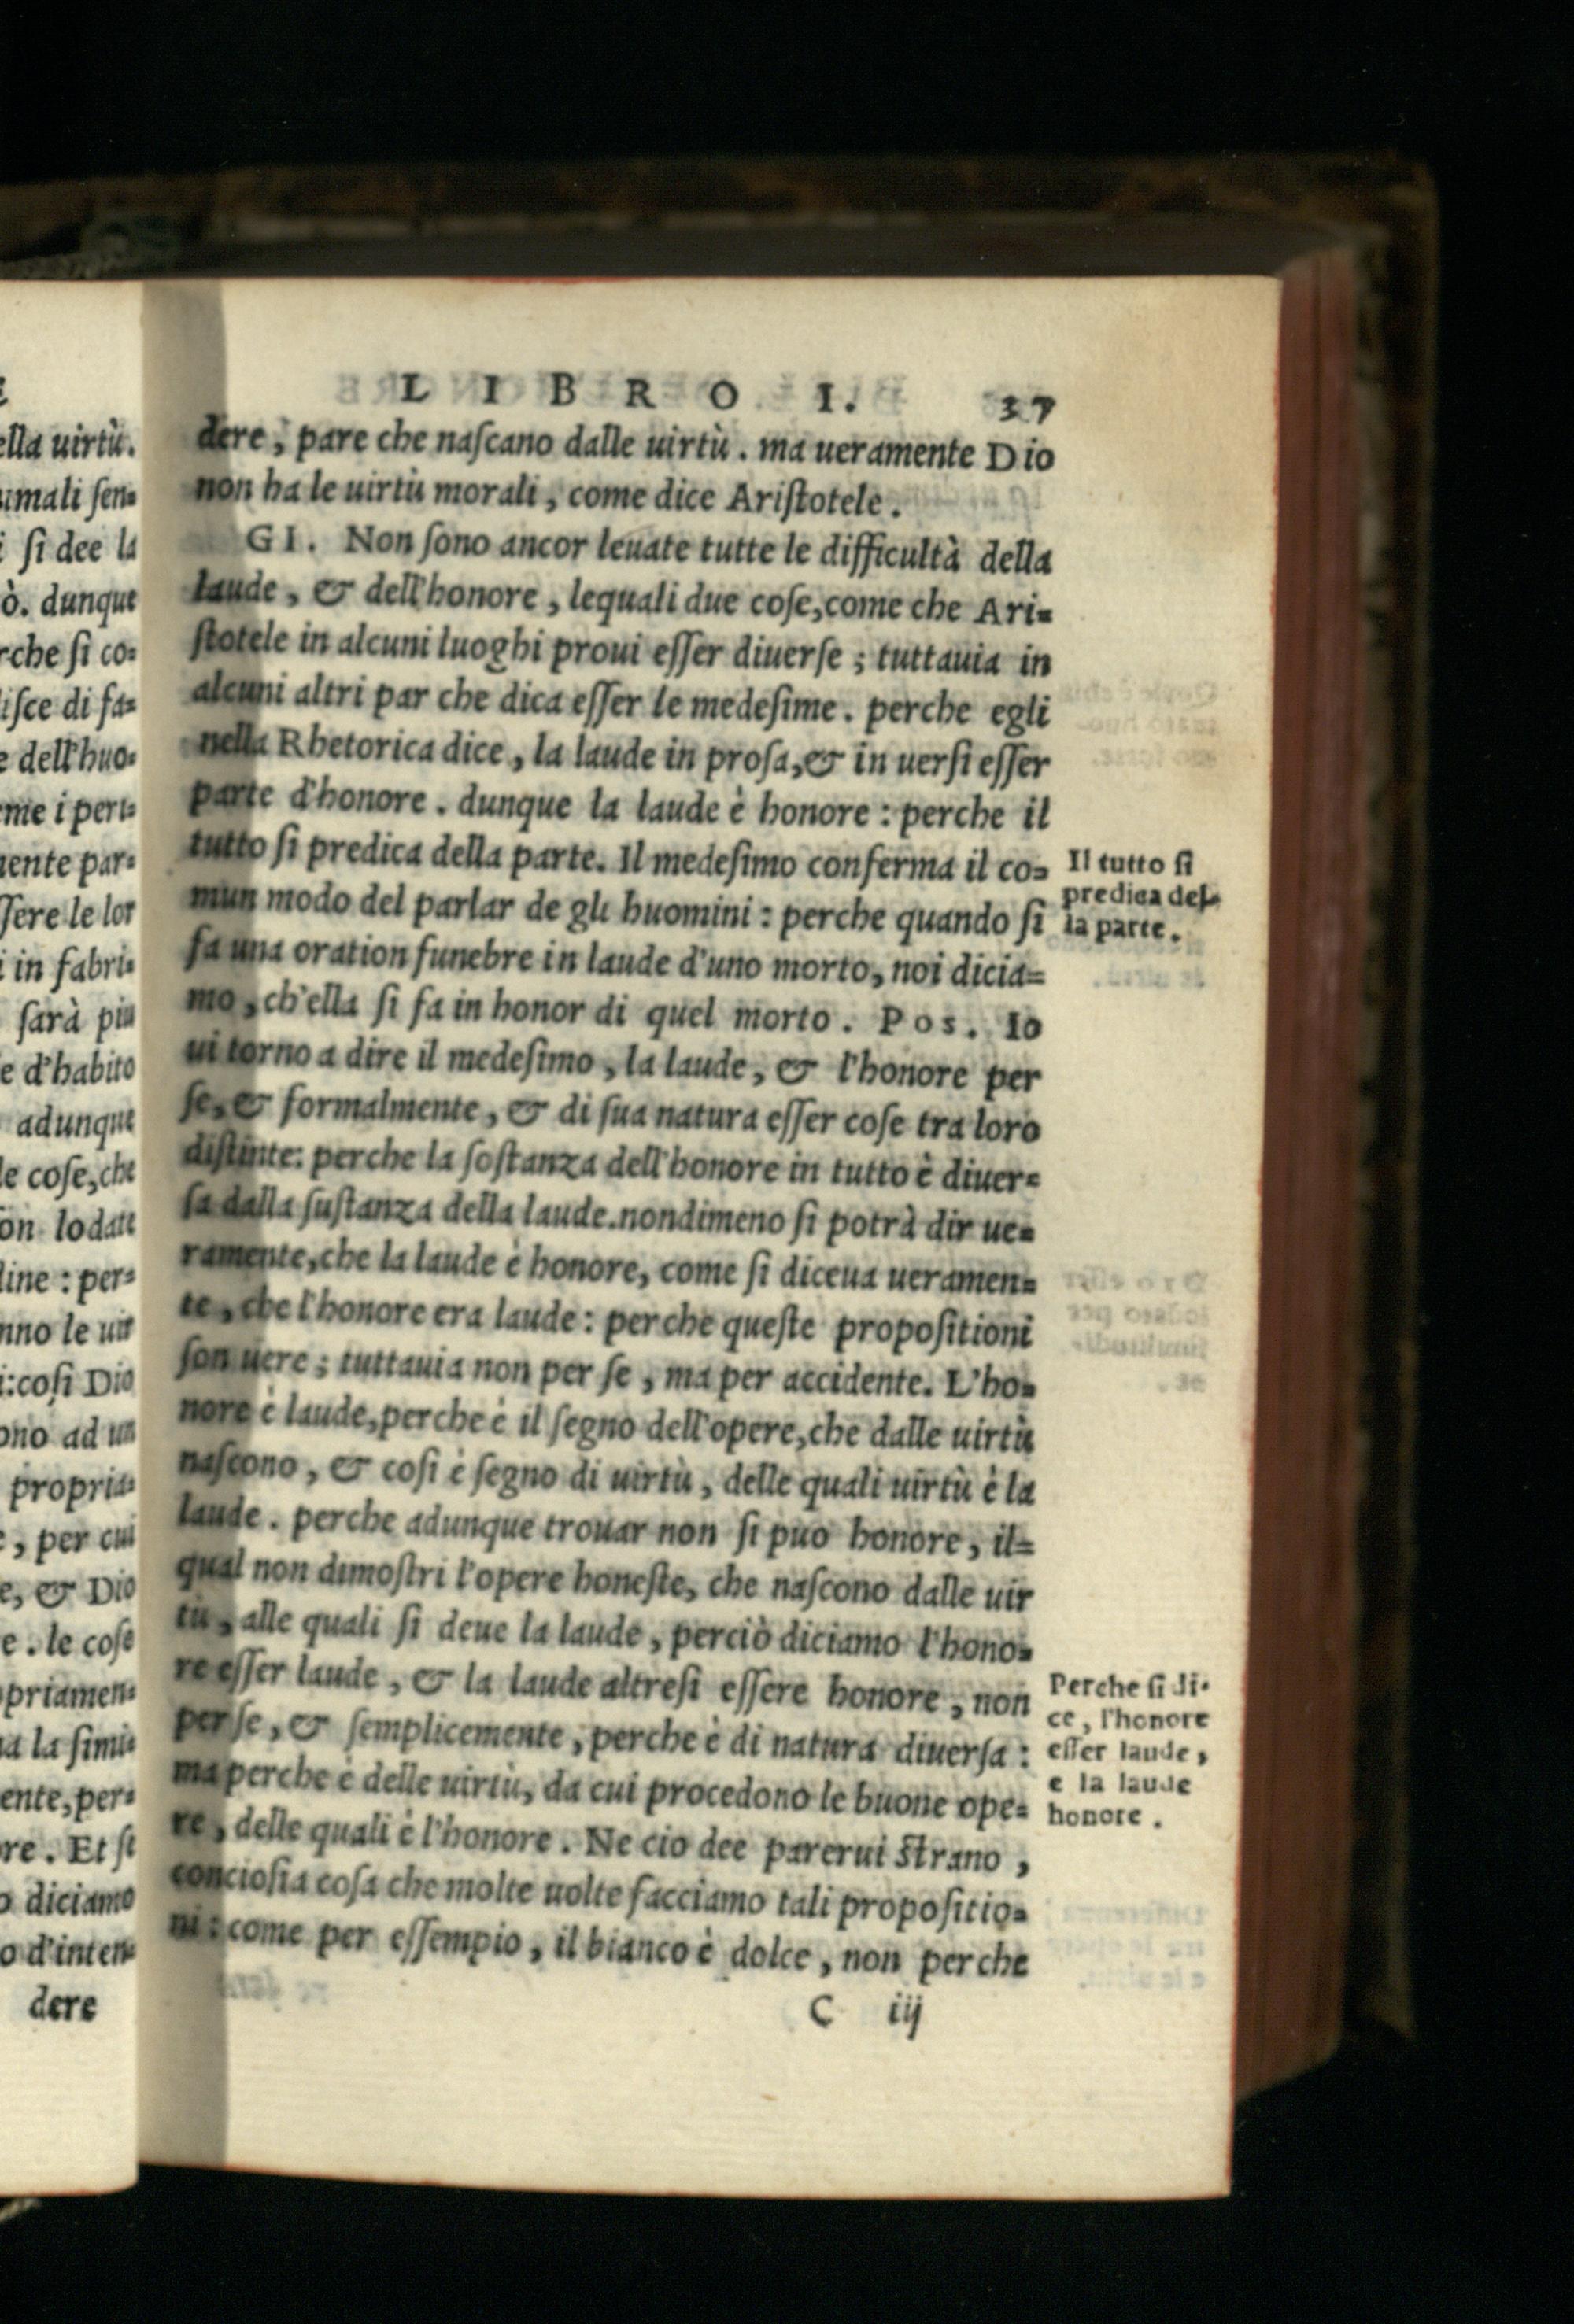 LIBRO I. 37
dere, pare che naſcano dalle uirtù. ma ueramente Dio
non ha le uirtù morali, come dice Ariſtotele.
GI. Non ſono ancor leuate tutte le difficultà della
laude, & dell'honore, lequali due coſe, come che Ari=
ſtotele in alcuni luoghi proui eſſer diuerſe; tuttauia in
alcuni altri par che dica eſſer le medeſime. perche egli
nella Rhetorica dice, la laude in proſa, & in uerſi eſſer
parte d'honore. dunque la laude è honore: perche il
tutto ſi predica della parte. Il medeſimo conferma il co=
mun modo del parlar de gli huomini: perche quando ſi
fa una oration funebre in laude d'uno morto, noi dicia=
mo, ch'ella ſi fa in honor di quel morto. Pos. Io
ui torno a dire il medeſimo, la laude, & l'honore per
ſe, & formalmente, & di ſua natura eſſer coſe tra loro
diſtinte: perche la ſoſtanza dell'honore in tutto è diuer=
ſa dalla ſuſtanza della laude. nondimeno ſi potrà dir ue=
ramente, che la laude è honore, come ſi diceua ueramen=
te, che l'honore era laude: perche queſte propoſitioni
ſon uere; tuttauia non per ſe, ma per accidente. L'ho=
nore è laude, perche è il ſegno dell'opere, che dalle uirtù
naſcono, & coſi è ſegno di uirtù, delle quali uirtù è la
laude. perche adunque trouar non ſi puo honore, il=
qual non dimoſtri l'opere honeſte, che naſcono dalle uir
tù, alle quali ſi deue la laude, perciò diciamo l'hono=
re eſſer laude, & la laude altreſi eſſere honore, non
per ſe, & ſemplicemente, perche è di natura diuerſa:
ma perche è delle uirtù, da cui procedono le buone ope=
re, delle quali è l'honore. Ne cio dee parerui ſtrano,
concioſia coſa che molte uolte facciamo tali propoſitio=
ni: come per eſſempio, il bianco è dolce, non perche
C iij
Il tutto ſi
predica del=
la parte.
Perche ſi di=
ce, l'honore
eſſer laude,
e la laude
honore.
ella uirtù.
ſi dee la
ò. dunque
e dell'huo=
d'habito
adunque
le coſe, che
propria=
, per cui
e, & Dio
e. le coſe
o diciamo
dere